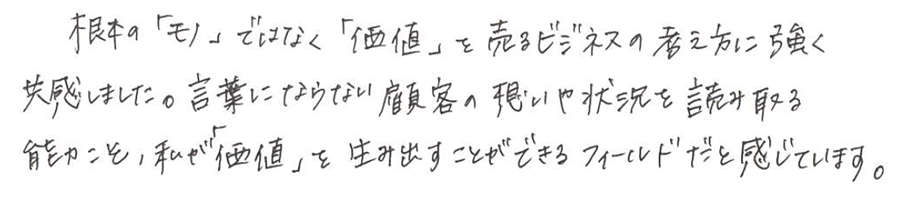 根本の「モノ」ではなく「価値」を売るビジネスの考え方に強く
共感しました。言葉にならない顧客の想いや状況を読み取る
能力こそ、私が「価値」を生み出すことができるフィールドだと感じています。